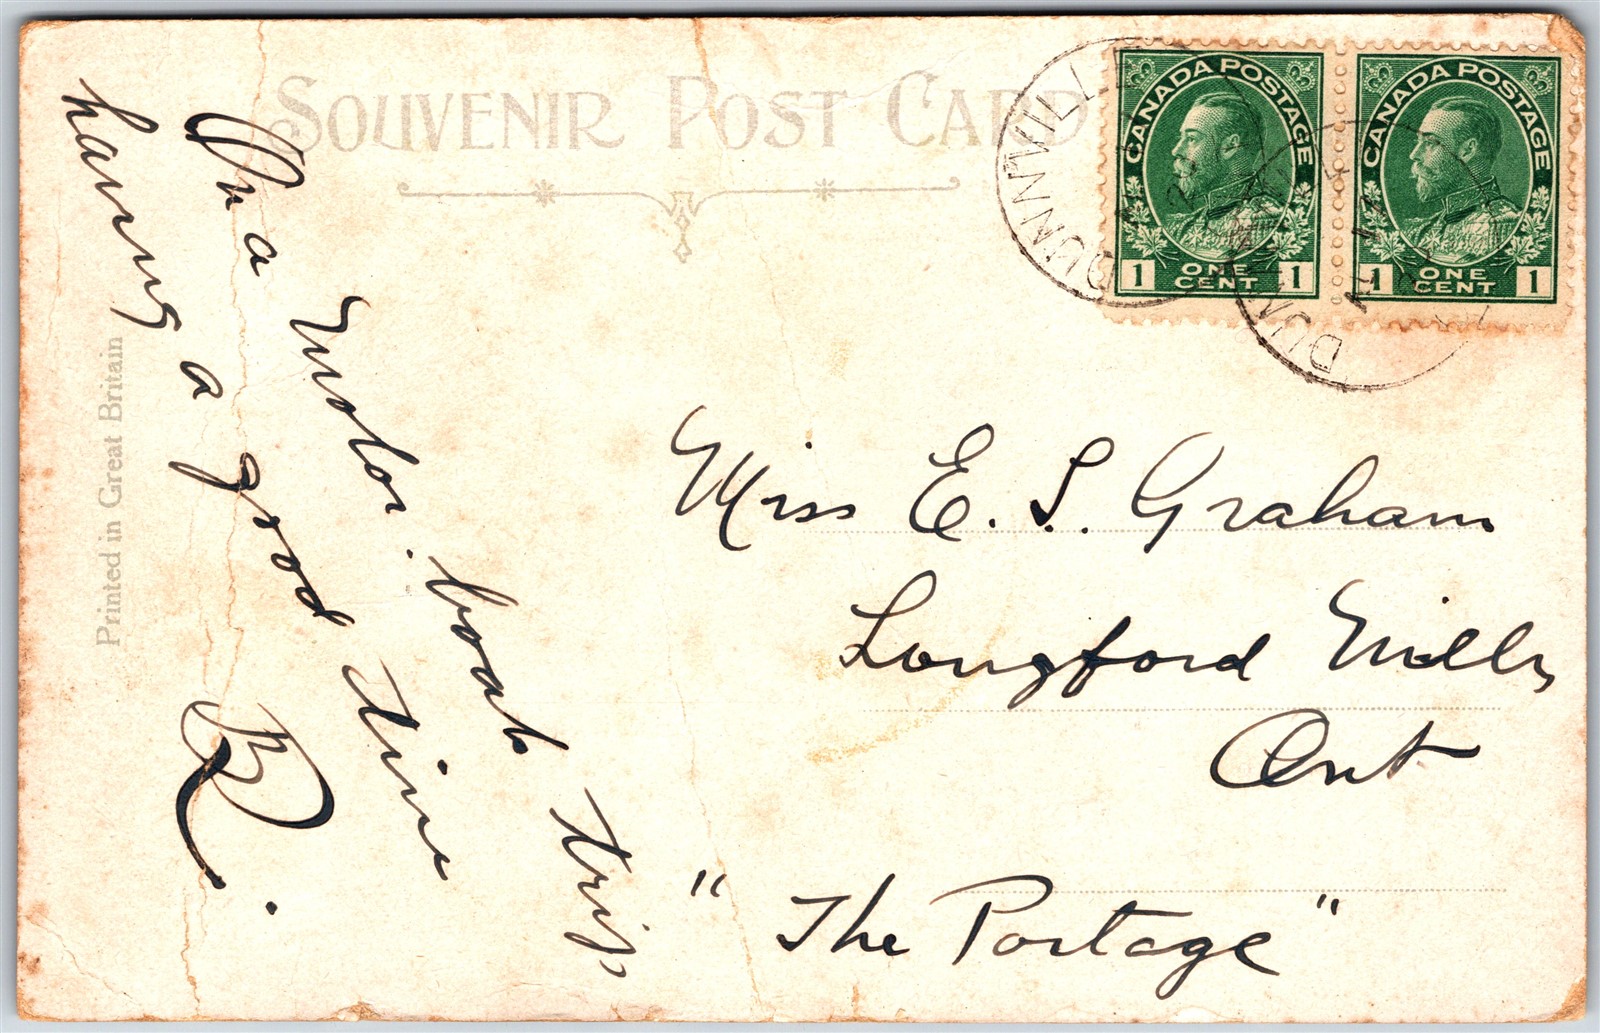 SOUVENIR POST CARD
CANADA POSTAGE
1 ONE CENT 1
CANADA POSTAGE
1 ONE CENT 1
DUNNVILLE
DUNN
Printed in Great Britain
On a motor boat trip
having a good time
B.
Miss E. S. Graham
Longford Mills
Ont
"The Portage"